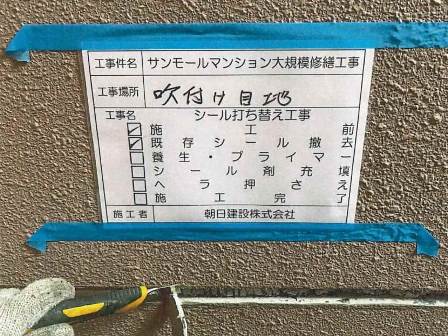 工事件名 サンモールマンション大規模修繕工事
工事場所 吹付け目地
工事名 シール打ち替え工事
☑ 施工前
☑ 既存シール撤去
☐ 養生・プライマー
☐ シール剤充填
☐ ヘラ押さえ
☐ 施工完了
施工者 朝日建設株式会社